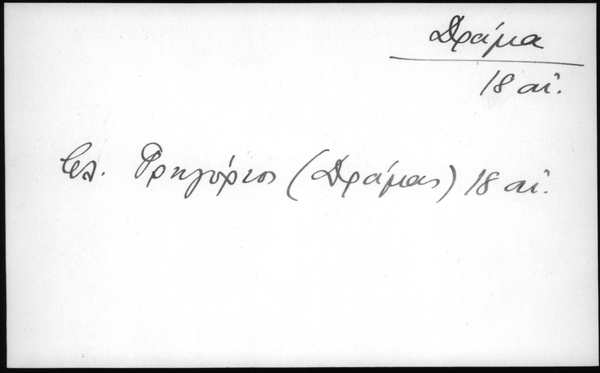 Δράμα
18 αι.
Βλ. Γρηγόριος (Δράμας) 18 αι.